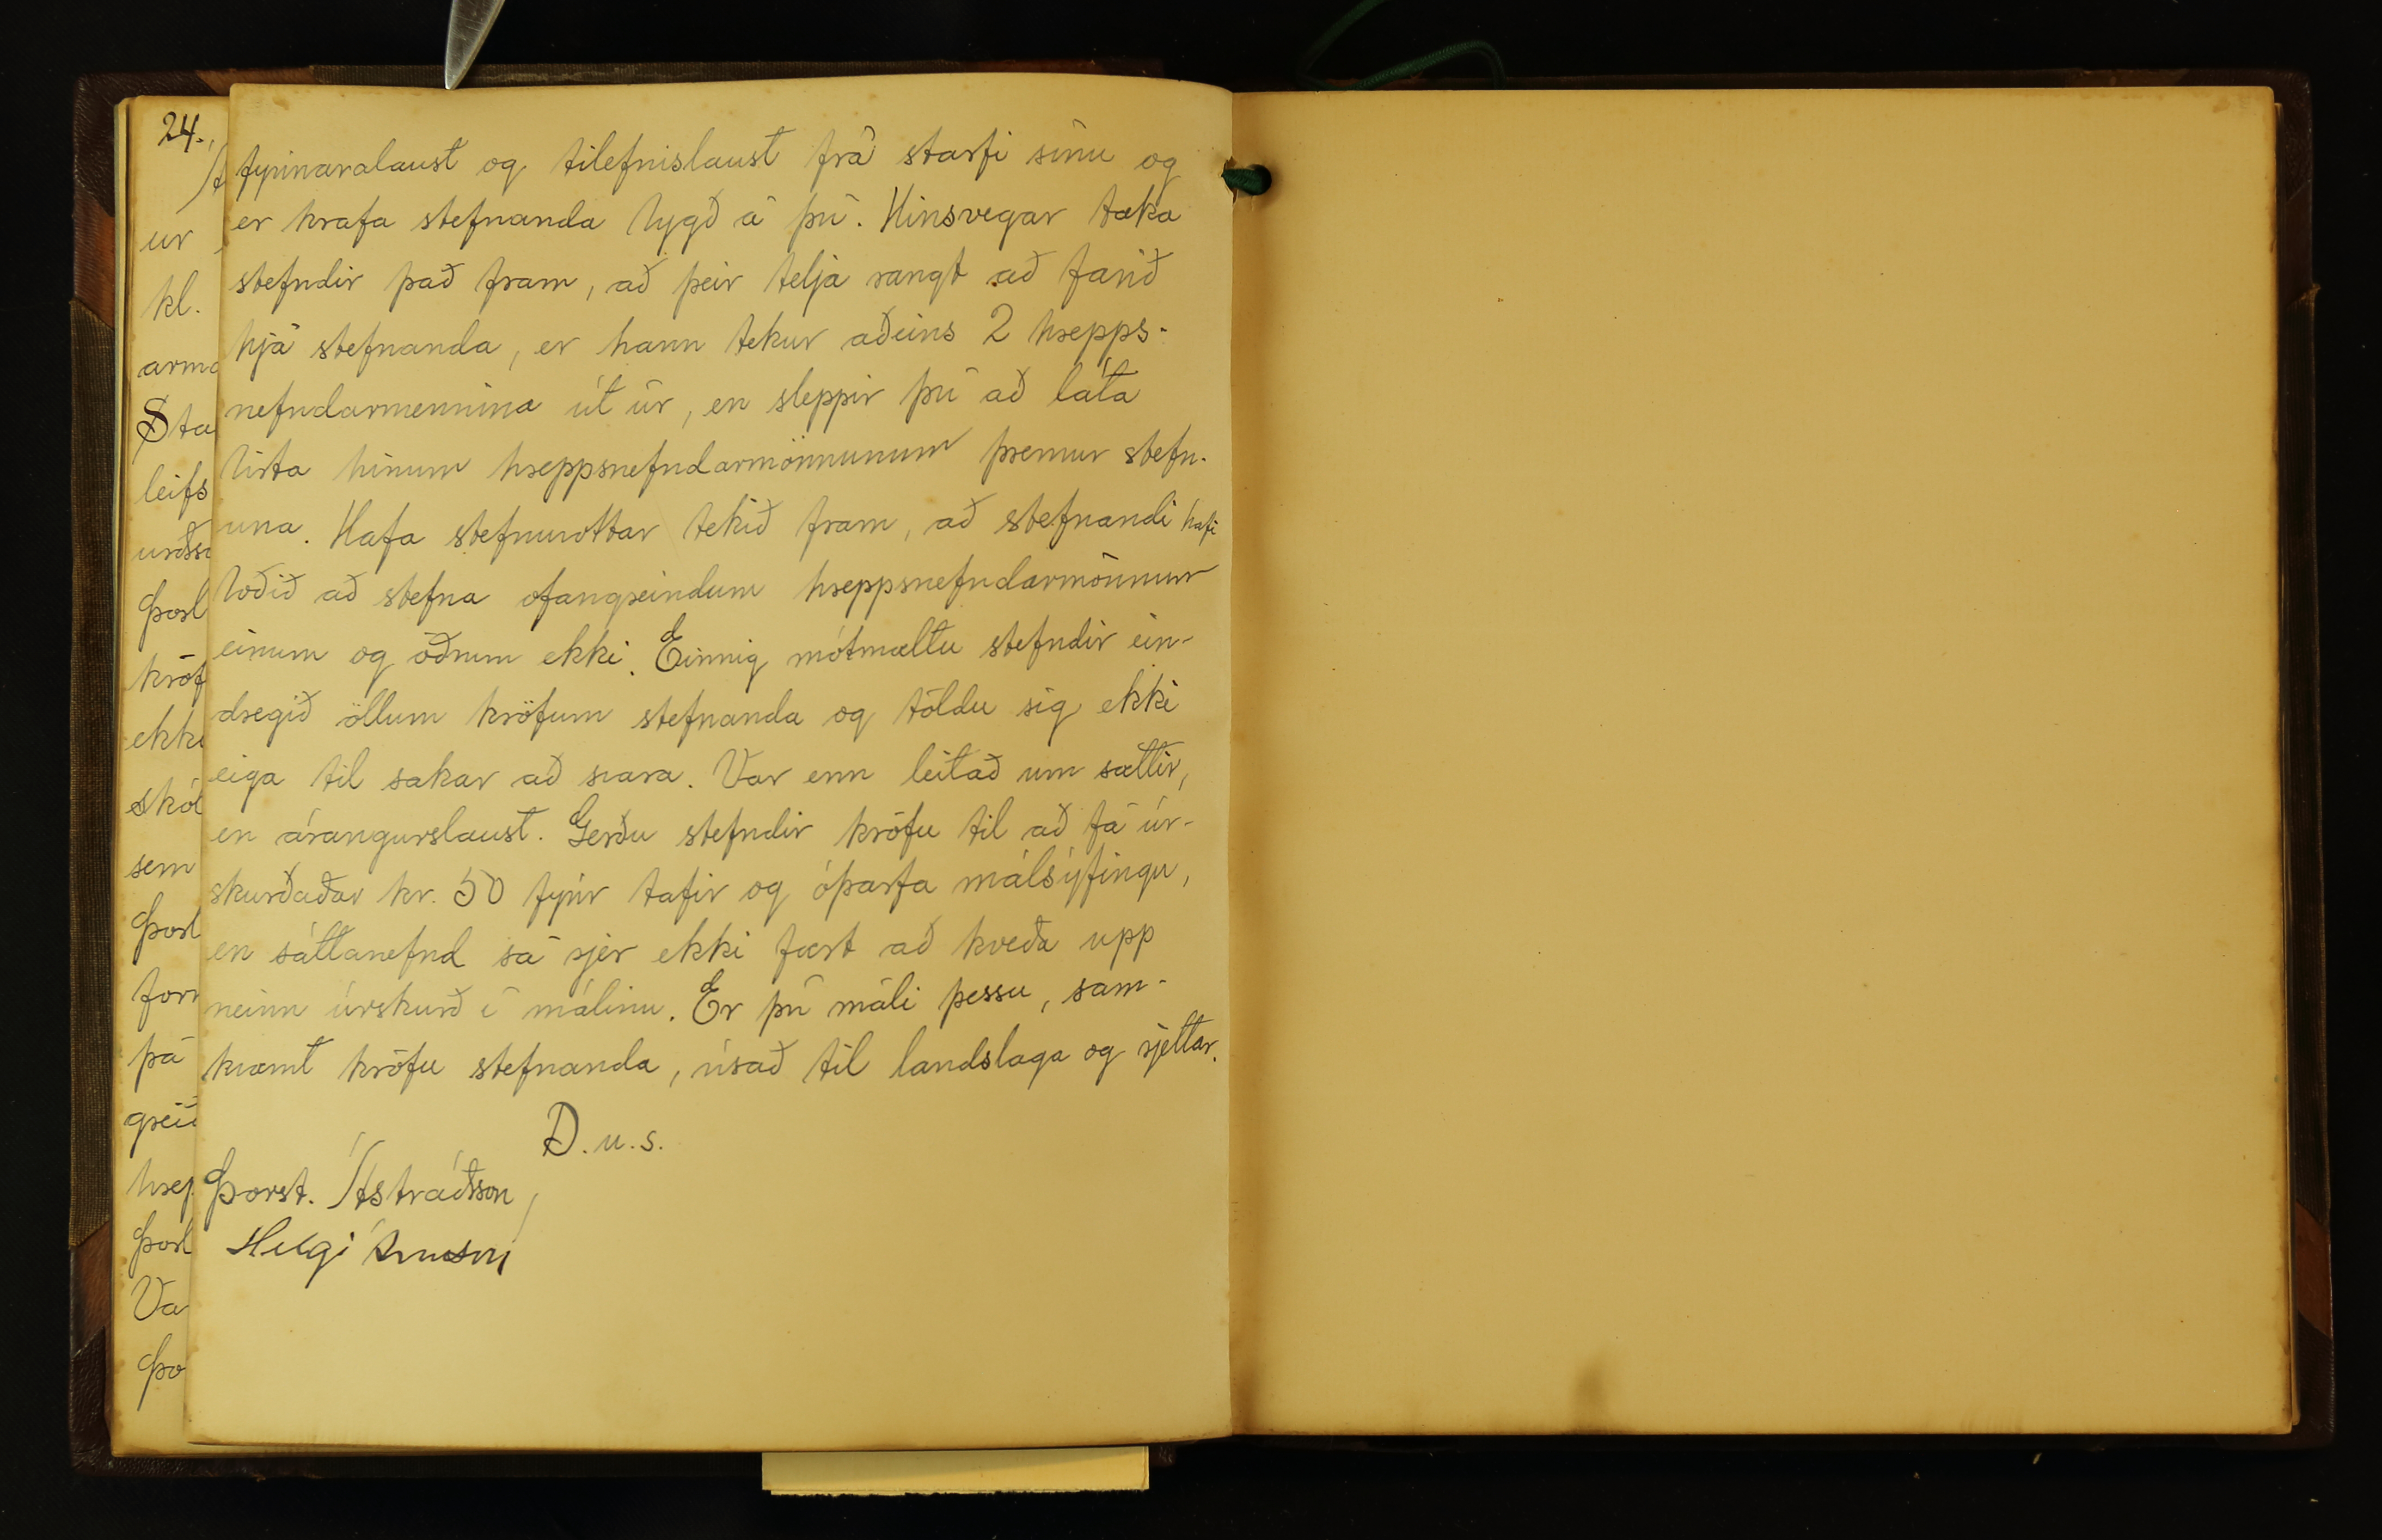 24.
ur
kl.
arma
Sta
leifs
urðss
Þorl
kröf
ekki
skól
sem
Þorl
for
þá
grei
hrep
Þorl
Va
Þo
fyrirvaralaust og tilefnislaust frá starfi sínu og
er krafa stefnanda bygð á því. Hinsvegar taka
stefndir það fram, að þeir telja rangt að farið
hjá stefnanda, er hann tekur aðeins 2 hrepps-
nefndarmennina út úr, en sleppir því að láta
birta hinum hreppsnefndarmönnunum þremur stefn-
una. Hafa stefnuvottar tekið fram, að stefnandi hafi
boðið að stefna ofangreindum hreppsnefndarmönnum
einum og öðrum ekki. Einnig mótmæltu stefndir ein-
dregið öllum kröfum stefnanda og töldu sig ekki
eiga til sakar að svara. Var enn leitað um sættir,
en árangurslaust. Gerðu stefndir kröfu til að fá úr-
skurðaðar kr. 50 fyrir tafir og óþarfa málsýfingu,
en sáttanefnd sá sjer ekki fært að kveða upp
neinn úrskurð í málinu. Er því máli þessu, sam-
kvæmt kröfu stefnanda, vísað til landslaga og rjettar.
D.u.s.
Þorst. Ástráðsson
Helgi Árnason